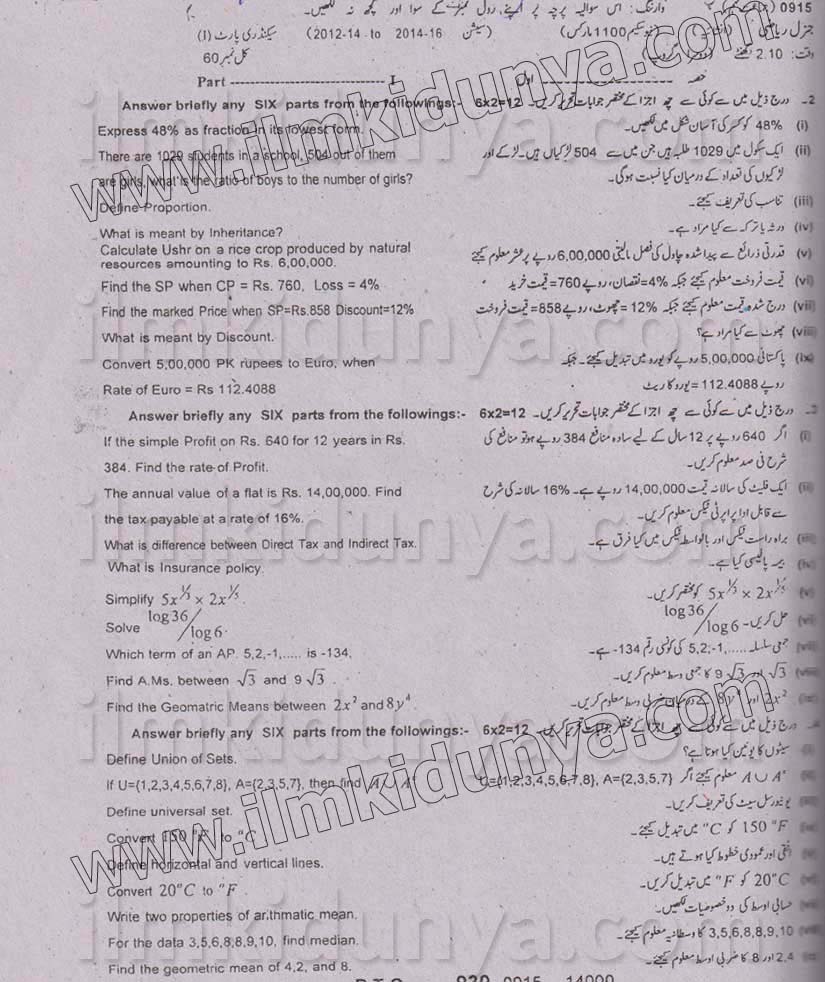 0915 وارننگ: اس سوالیہ پرچہ پر اپنے رول نمبر کے سوا اور کچھ نہ لکھیں۔
جنرل ریاضی (نیو سکیم 1100 مارکس) (سیشن 2012-14 to 2014-16) سیکنڈری پارٹ (I)
وقت: 2.10 گھنٹے کل نمبر 60
Part ------------------ I حصہ ------------------ اول
Answer briefly any SIX parts from the followings:- 6x2=12 2- درج ذیل میں سے کوئی سے چھ اجزا کے مختصر جوابات تحریر کریں۔
Express 48% as fraction in its lowest form. (i) 48% کو کسر کی آسان شکل میں لکھیں۔
There are 1029 students in a school, 504 out of them (ii) ایک سکول میں 1029 طلبہ ہیں جن میں سے 504 لڑکیاں ہیں۔ لڑکے اور
are girls, what is the ratio of boys to the number of girls? لڑکیوں کی تعداد کے درمیان کیا نسبت ہوگی۔
Define Proportion. (iii) تناسب کی تعریف کیجئے۔
What is meant by Inheritance? (iv) ورثہ یا ترکہ سے کیا مراد ہے۔
Calculate Ushr on a rice crop produced by natural (v) قدرتی ذرائع سے پیدا شدہ چاول کی فصل مالیتی 6,00,000 روپے پر عشر معلوم کیجئے
resources amounting to Rs. 6,00,000.
Find the SP when CP = Rs. 760, Loss = 4% (vi) قیمت فروخت معلوم کیجئے جبکہ 4%= نقصان، روپے 760= قیمت خرید
Find the marked Price when SP=Rs.858 Discount=12% (vii) درج شدہ قیمت معلوم کیجئے جبکہ 12% = چھوٹ، روپے 858= قیمت فروخت
What is meant by Discount. (viii) چھوٹ سے کیا مراد ہے؟
Convert 5,00,000 PK rupees to Euro, when (ix) پاکستانی 5,00,000 روپے کو یورو میں تبدیل کیجئے۔ جبکہ
Rate of Euro = Rs 112.4088 روپے 112.4088 = یورو کا ریٹ
Answer briefly any SIX parts from the followings:- 6x2=12 3- درج ذیل میں سے کوئی سے چھ اجزا کے مختصر جوابات تحریر کریں۔
If the simple Profit on Rs. 640 for 12 years in Rs. (i) اگر 640 روپے پر 12 سال کے لیے سادہ منافع 384 روپے ہو تو منافع کی
384. Find the rate of Profit. شرح فی صد معلوم کریں۔
The annual value of a flat is Rs. 14,00,000. Find (ii) ایک فلیٹ کی سالانہ قیمت 14,00,000 روپے ہے۔ 16% سالانہ کی شرح
the tax payable at a rate of 16%. سے قابل ادا پراپرٹی ٹیکس معلوم کریں۔
What is difference between Direct Tax and Indirect Tax. (iii) براہ راست ٹیکس اور بالواسطہ ٹیکس میں کیا فرق ہے۔
What is Insurance policy. (iv) بیمہ پالیسی کیا ہے۔
Simplify 5x^{1/3} × 2x^{1/5} (v) 5x^{1/3} × 2x^{1/5} کو مختصر کریں۔
Solve log36/log6. (vi) log36/log6 حل کریں۔
Which term of an AP. 5,2,-1,..... is -134, (vii) جمعی سلسلہ 5,2,-1,..... کی کونسی رقم -134 ہے۔
Find A.Ms. between √3 and 9√3. (viii) √3 اور 9√3 کا جمعی وسط معلوم کریں۔
Find the Geomatric Means between 2x² and 8y⁴. (ix) 2x² اور 8y⁴ کے درمیان ضربی وسط معلوم کریں۔
Answer briefly any SIX parts from the followings:- 6x2=12 درج ذیل میں سے کوئی سے چھ اجزا کے مختصر جوابات تحریر کریں۔
Define Union of Sets. (i) سیٹوں کا یونین کیا ہوتا ہے؟
If U={1,2,3,4,5,6,7,8}, A={2,3,5,7}, then find A∪Aᶜ (ii) U={1,2,3,4,5,6,7,8}, A={2,3,5,7} اگر A∪Aᶜ معلوم کیجئے
Define universal set. (iii) یونیورسل سیٹ کی تعریف کریں۔
Convert 150 °F to °C (iv) 150 °F کو °C میں تبدیل کیجئے۔
Define horizontal and vertical lines. (v) افقی اور عمودی خطوط کیا ہوتے ہیں۔
Convert 20°C to °F. (vi) 20°C کو °F میں تبدیل کریں۔
Write two properties of arithmatic mean. (vii) حسابی اوسط کی دو خصوصیات لکھیں۔
For the data 3,5,6,8,8,9,10, find median. (viii) 3,5,6,8,8,9,10 کا وسطانیہ معلوم کیجئے۔
Find the geometric mean of 4,2, and 8. (ix) 2,4 اور 8 کا ضربی اوسط معلوم کیجئے۔
920 0915 14000
www.ilmkidunya.com
www.ilmkidunya.com
ilmkidunya.com
ilmkidunya.com
ilmkidunya.com
ilmkidunya.com
ilmkidunya.com